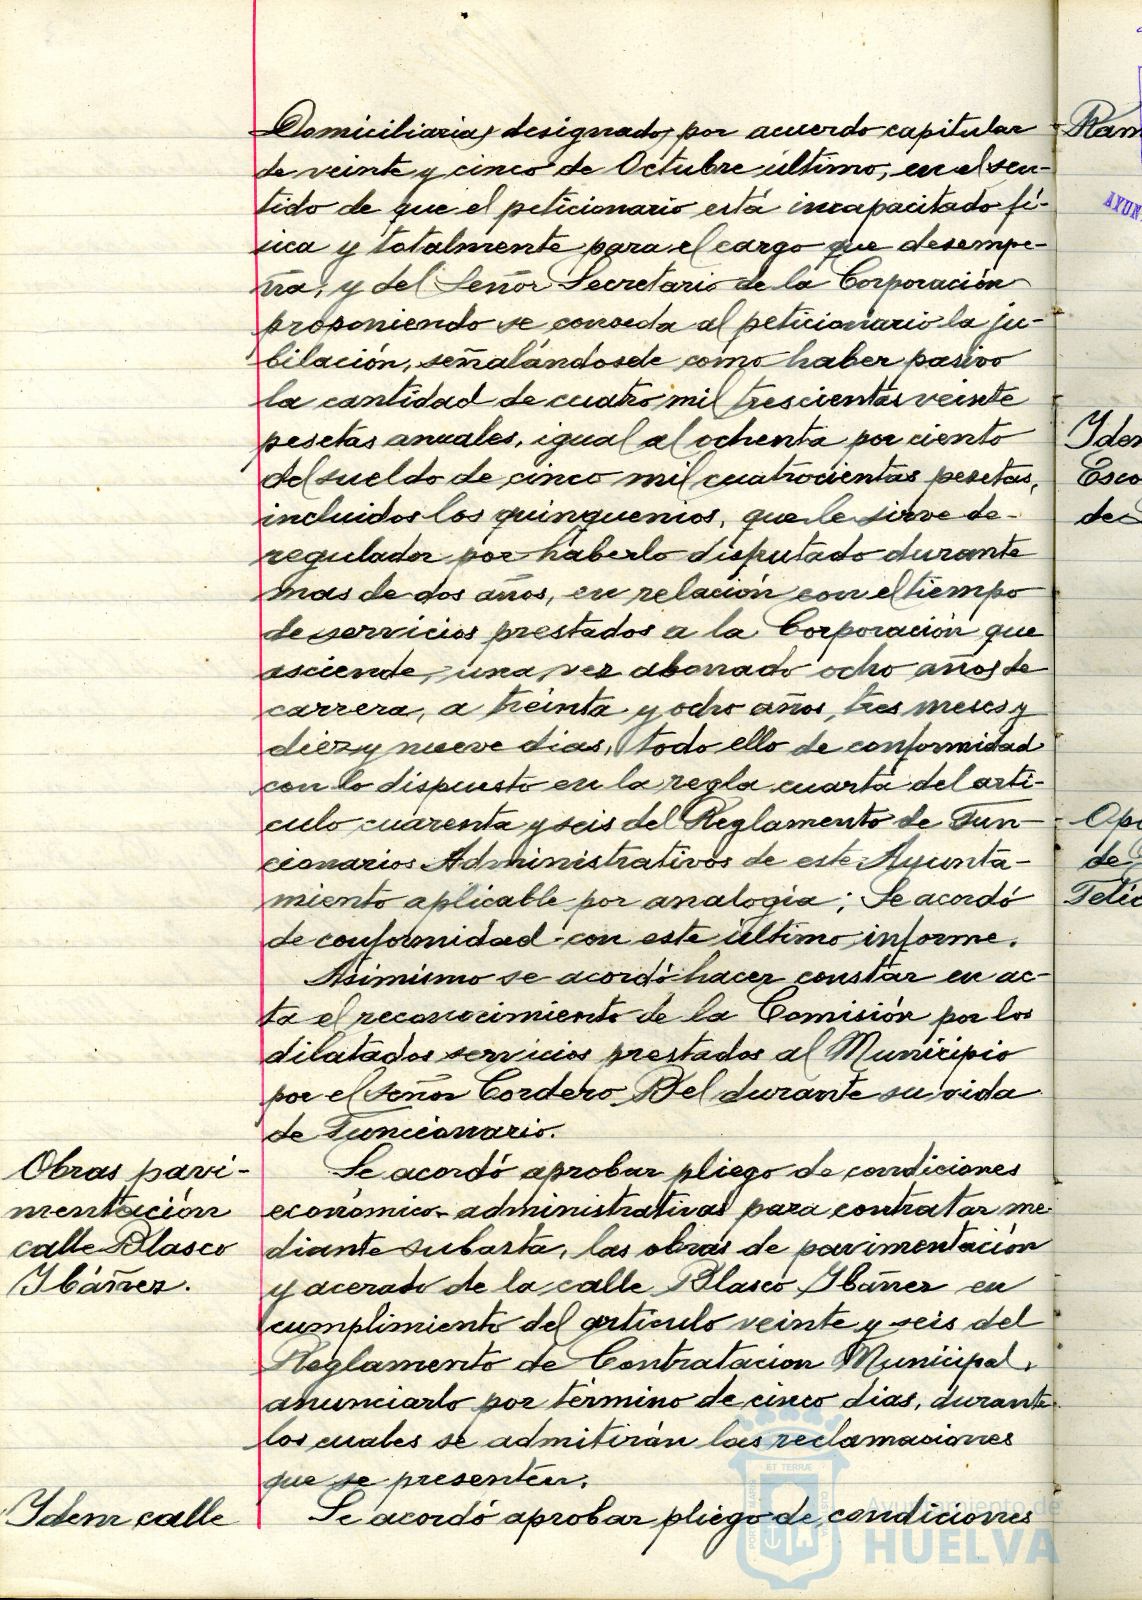 Domiciliaria, designado, por acuerdo capitular
de veinte y cinco de Octubre último, en el sen-
tido de que el peticionario está incapacitado fí-
sica y totalmente para el cargo que desempe-
ña, y del Señor Secretario de la Corporación
proponiendo se conceda al peticionario la ju-
bilación, señalándosele como haber pasivo
la cantidad de cuatro mil trescientas veinte
pesetas anuales, igual al ochenta por ciento
del sueldo de cinco mil cuatrocientas pesetas,
incluidos los quinquenios, que le sirve de
regulador por haberlo disfrutado durante
mas de dos años, en relación con el tiempo
de servicios prestados a la Corporación que
asciende, una vez abonado ocho años de
carrera, a treinta y ocho años, tres meses y
diez y nueve dias, todo ello de conformidad
con lo dispuesto en la regla cuarta del artí-
culo cuarenta y seis del Reglamento de Fun-
cionarios Administrativos de este Ayunta-
miento aplicable por analogía; Se acordó
de conformidad con este último informe.
Asimismo se acordó hacer constar en ac-
ta el reconocimiento de la Comisión por los
dilatados servicios prestados al Municipio
por el Señor Cordero Bel durante su vida
de Funcionario.
Obras pavi-
mentación
calle Blasco
Ibáñez.
Se acordó aprobar pliego de condiciones
económico-administrativas para contratar me-
diante subasta, las obras de pavimentación
y acerado de la calle Blasco Ibáñez en
cumplimiento del artículo veinte y seis del
Reglamento de Contratacion Municipal,
anunciarlo por término de cinco dias, durante
los cuales se admitirán las reclamaciones
que se presenten.
Idem calle
Se acordó aprobar pliego de condiciones
Ayuntamiento de
HUELVA
Ram
AYUN
Idem
Esco
de
Opo
de
Felic